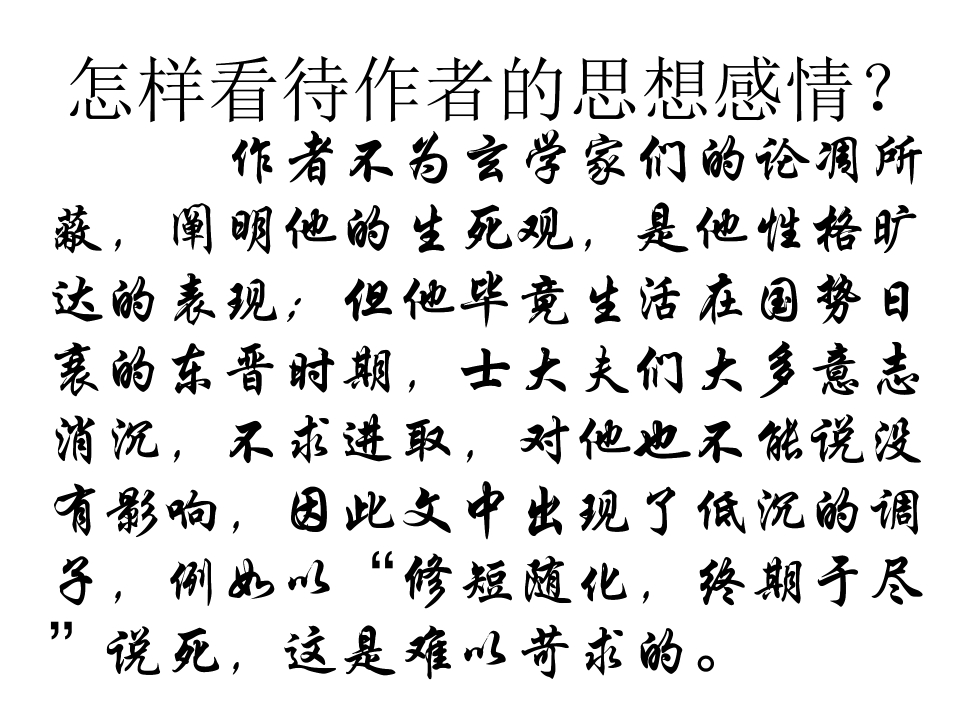 怎样看待作者的思想感情？
作者不为玄学家们的论凋所
蔽，阐明他的生死观，是他性格旷
达的表现；但他毕竟生活在国势日
衰的东晋时期，士大夫们大多意志
消沉，不求进取，对他也不能说没
有影响，因此文中出现了低沉的调
子，例如以“修短随化，终期于尽
”说死，这是难以苛求的。